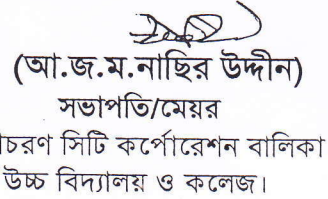 (আ.জ.ম.নাছির উদ্দীন)
সভাপতি/মেয়র
চরণ সিটি কর্পোরেশন বালিকা
উচ্চ বিদ্যালয় ও কলেজ।